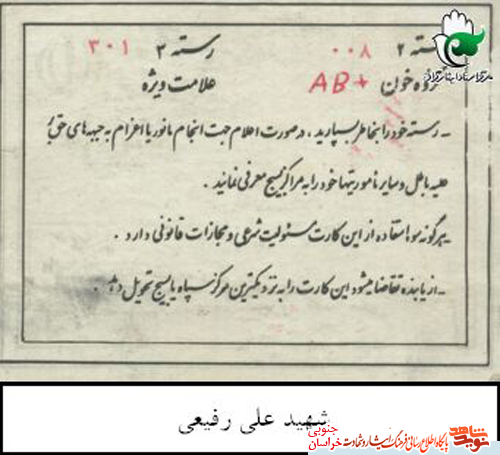 رسته ۲ ۰۰۸ رسته ۳ ۳۰۱
گروه خون AB+ علامت ویژه
- رسته خود را بخاطر بسپارید ، در صورت اعلام جهت انجام مانور یا اعزام به جبهه های حق
علیه باطل و سایر مأموریتها خود را به مراکز بسیج معرفی نمائید .
- هرگونه سوء استفاده از این کارت مسئولیت شرعی و مجازات قانونی دارد .
- از یابنده تقاضا میشود این کارت را به نزدیکترین مرکز سپاه یا بسیج تحویل دهد .
شهید علی رفیعی
پایگاه اطلاع رسانی فرهنگ ایثار و شهادت خراسان جنوبی